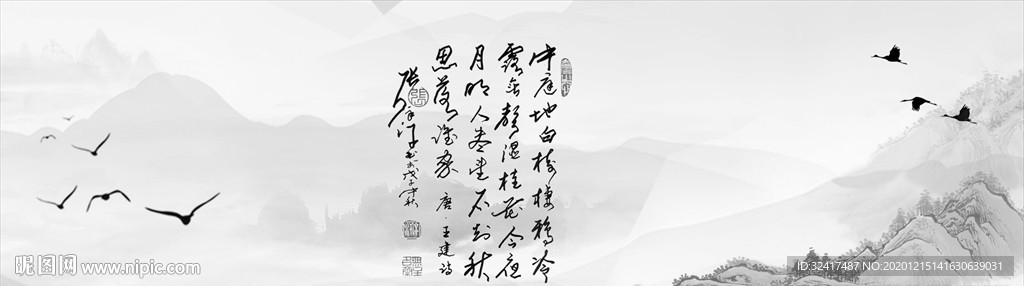 中庭地白樹棲鴉冷
露無聲濕桂花今夜
月明人盡望不知秋
思落誰家 唐·王建詩
戊子中秋
昵图网 www.nipic.com
ID:32417487 NO:20201215141630639031